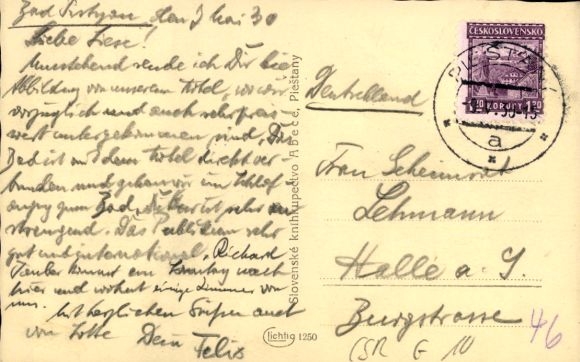 Bad Pistyan, den 7 Mai 30
Liebe Liese!
Umstehend sende ich Dir die
Abbildung von unserem Hotel, wo wir
vorzüglich und auch sehr preis
wert untergekommen sind. Das
Bad ist mit dem Hotel direkt ver
bunden und gehen wir im Schlaf
anzug zum Bad, die Kur ist sehr an
strengend. Das Publikum sehr
gut und international, Richard
Tauber kommt am Sonntag nach
hier und wohnt einige Zimmer von
uns. Mit herzlichen Grüßen auch
von Lotte Dein Felix
Slovenské kníhkupectvo Abeles, Piešťany
Lichtig 1250
ČESKOSLOVENSKO
1.20 KORUNY 1.20
PIEŠŤANY
a
Deutschland
Frau Geheimrat
Lehmann
Halle a. S.
Burgstrasse 46
ČSR G 10